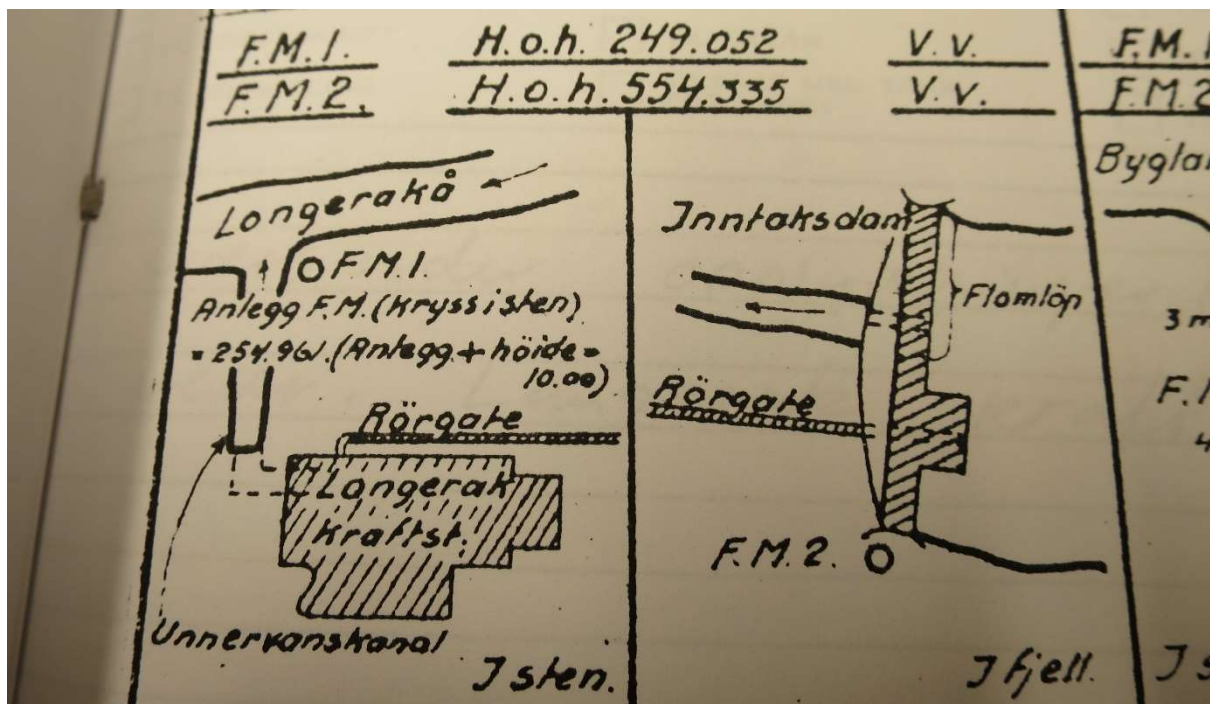 F.M.1. H.o.h. 249.052 V.V. F.M.1
F.M.2. H.o.h. 554.335 V.V. F.M.2
Longerakå
F.M.1.
Anlegg F.M. (Kryss i sten)
= 254.961. (Anlegg. + höide =
10.00)
Rörgate
Longerak
Kraftst.
Unnervanskanal
I sten.
Inntaksdam
Flomlöp
Rörgate
F.M.2.
I fjell.
3 m
4